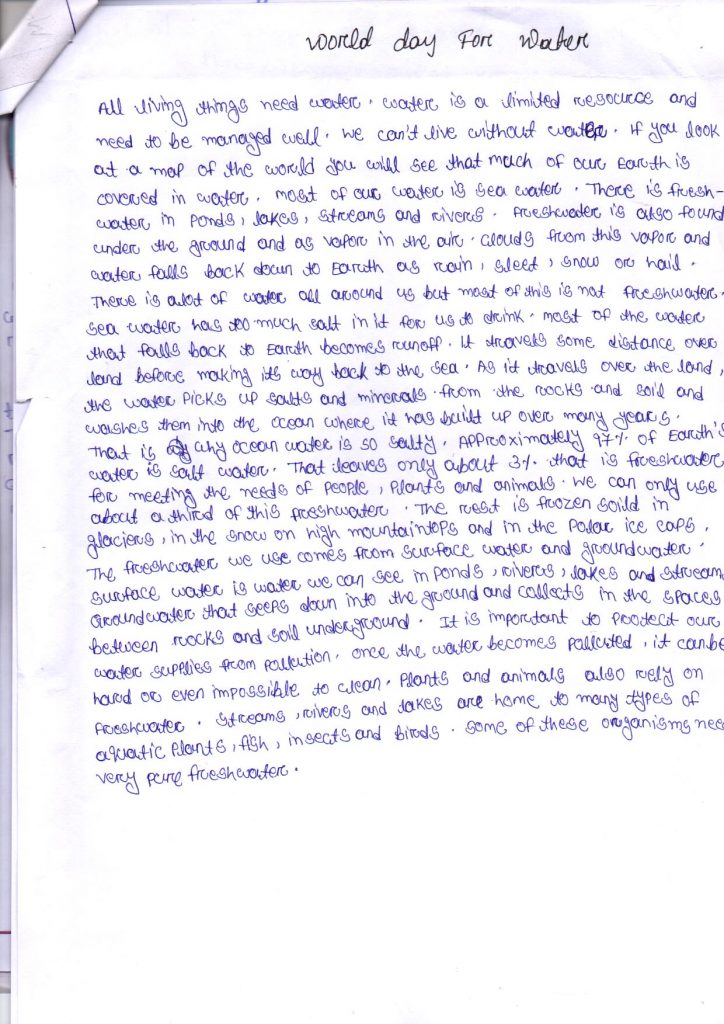 World day For Water
All living things need water. water is a limited resource and
need to be managed well. we can't live without water. If you look
at a map of the world you will see that much of our Earth is
covered in water. most of our water is sea water. There is fresh-
water in ponds, lakes, streams and rivers. freshwater is also found
under the ground and as vapor in the air. clouds from this vapor and
water falls back down to Earth as rain, sleet, snow or hail.
There is alot of water all around us but most of this is not freshwater.
sea water has too much salt in it for us to drink. most of the water
that falls back to Earth becomes runoff. It travels some distance over
land before making its way back to the sea. As it travels over the land,
the water picks up salts and minerals from the rocks and soil and
washes them into the ocean where it has built up over many years.
That is why ocean water is so salty. Approximately 97% of Earth's
water is salt water. That leaves only about 3% that is freshwater
for meeting the needs of people, plants and animals. we can only use
about a third of this freshwater. The rest is frozen soild in
glaciers, in the snow on high mountaintops and in the Polar ice caps.
The freshwater we use comes from surface water and groundwater.
surface water is water we can see in ponds, rivers, lakes and stream
Groundwater that seeps down into the ground and collects in the spaces
between rocks and soil underground. It is important to protect our
water supplies from pollution. once the water becomes polluted, it canbe
hard or even impossible to clean. Plants and animals also rely on
freshwater. streams, rivers and lakes are home to many types of
aquatic plants, fish, insects and birds. some of these organisms nee
very pure freshwater.